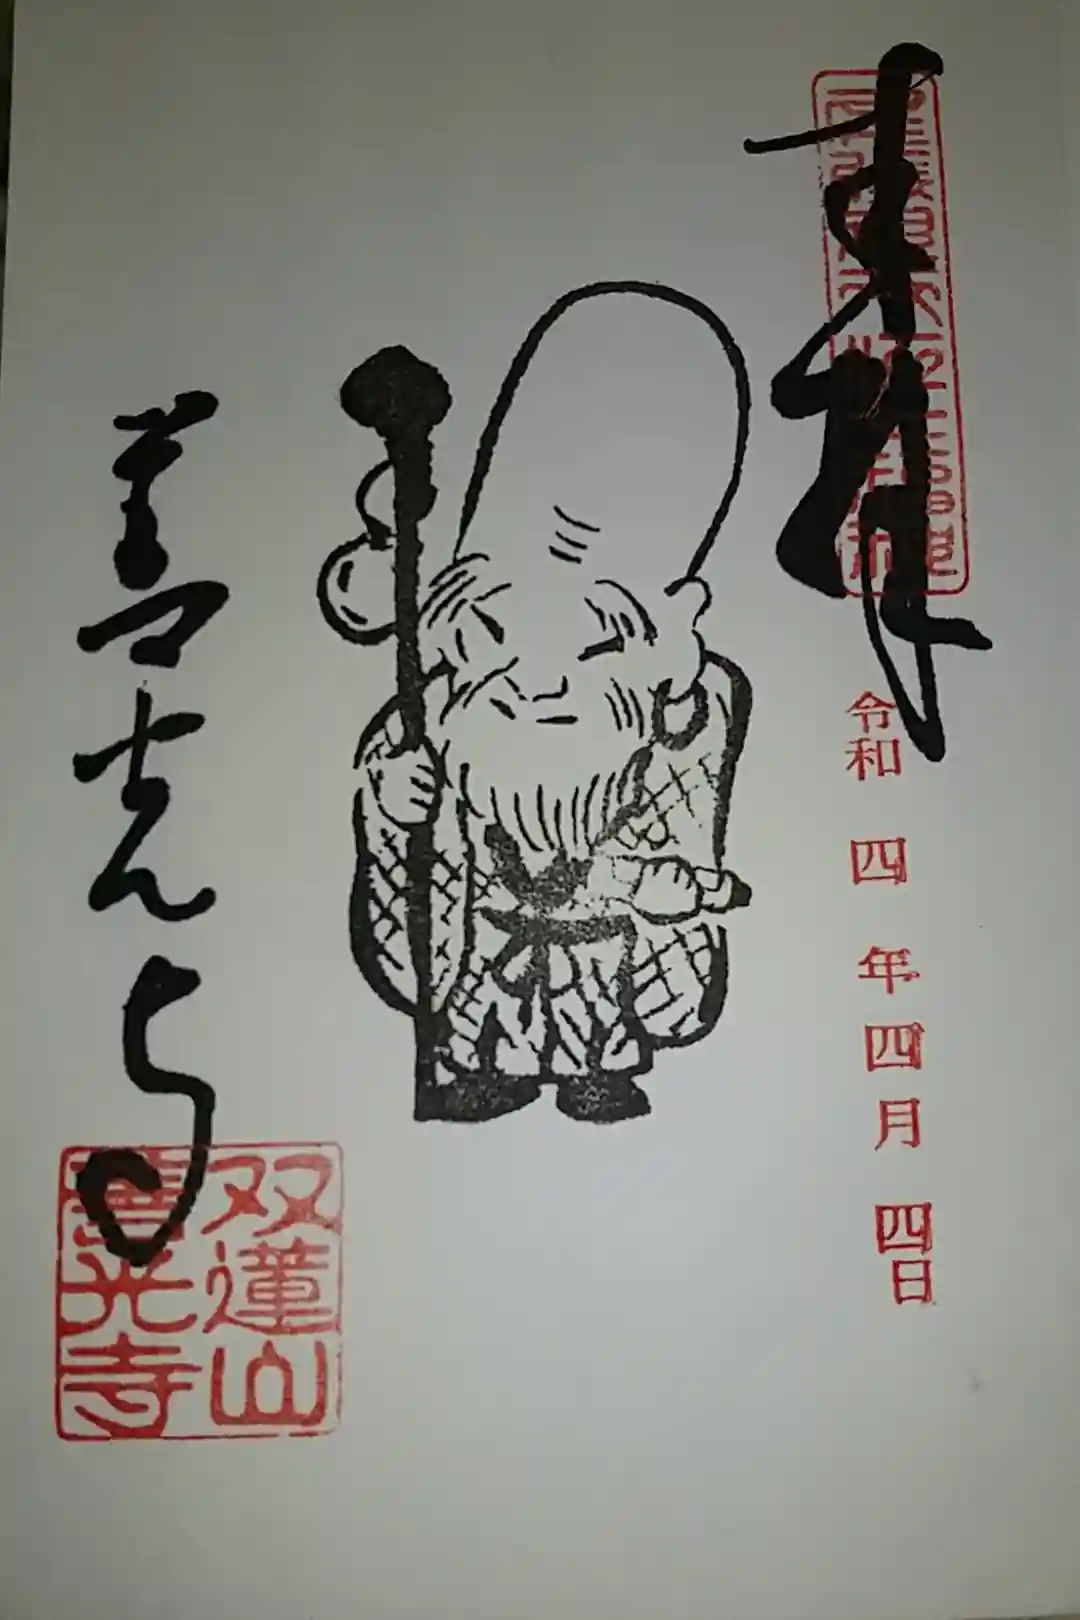 奉拝
令和四年四月四日
善光寺
双蓮山
善光寺